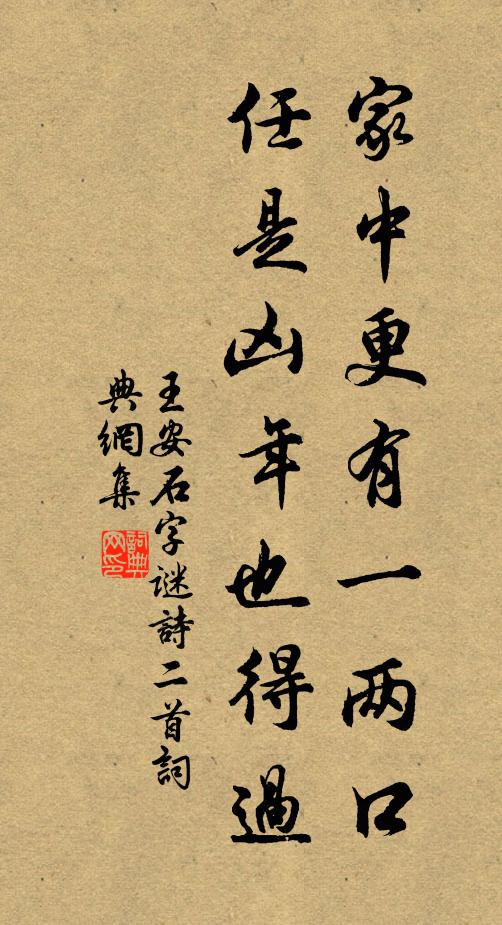 家中更有一两口
任是凶年也得過
王安石字谜詩二首詞
典網集
詞典
网印